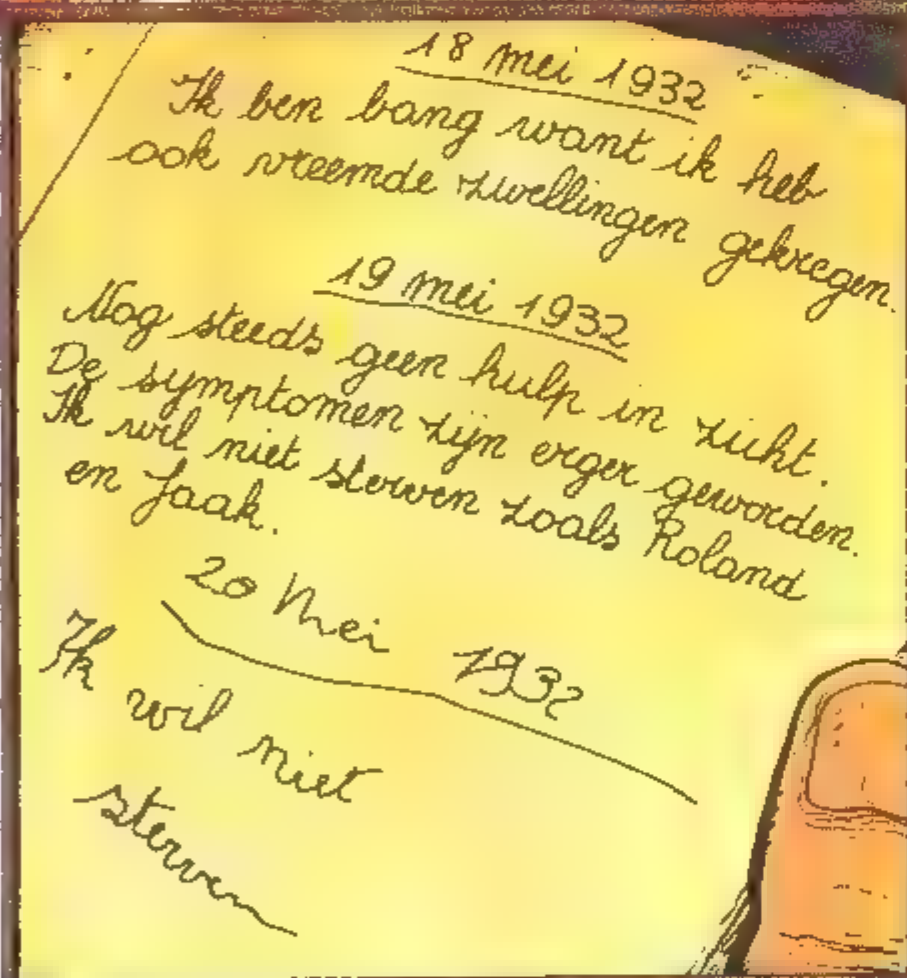 18 mei 1932
Ik ben bang want ik heb
ook vreemde zwellingen gekregen.
19 mei 1932
Nog steeds geen hulp in zicht.
De symptomen zijn erger geworden.
Ik wil niet sterven zoals Roland
en Jaak.
20 Mei 1932
Ik wil niet
sterven